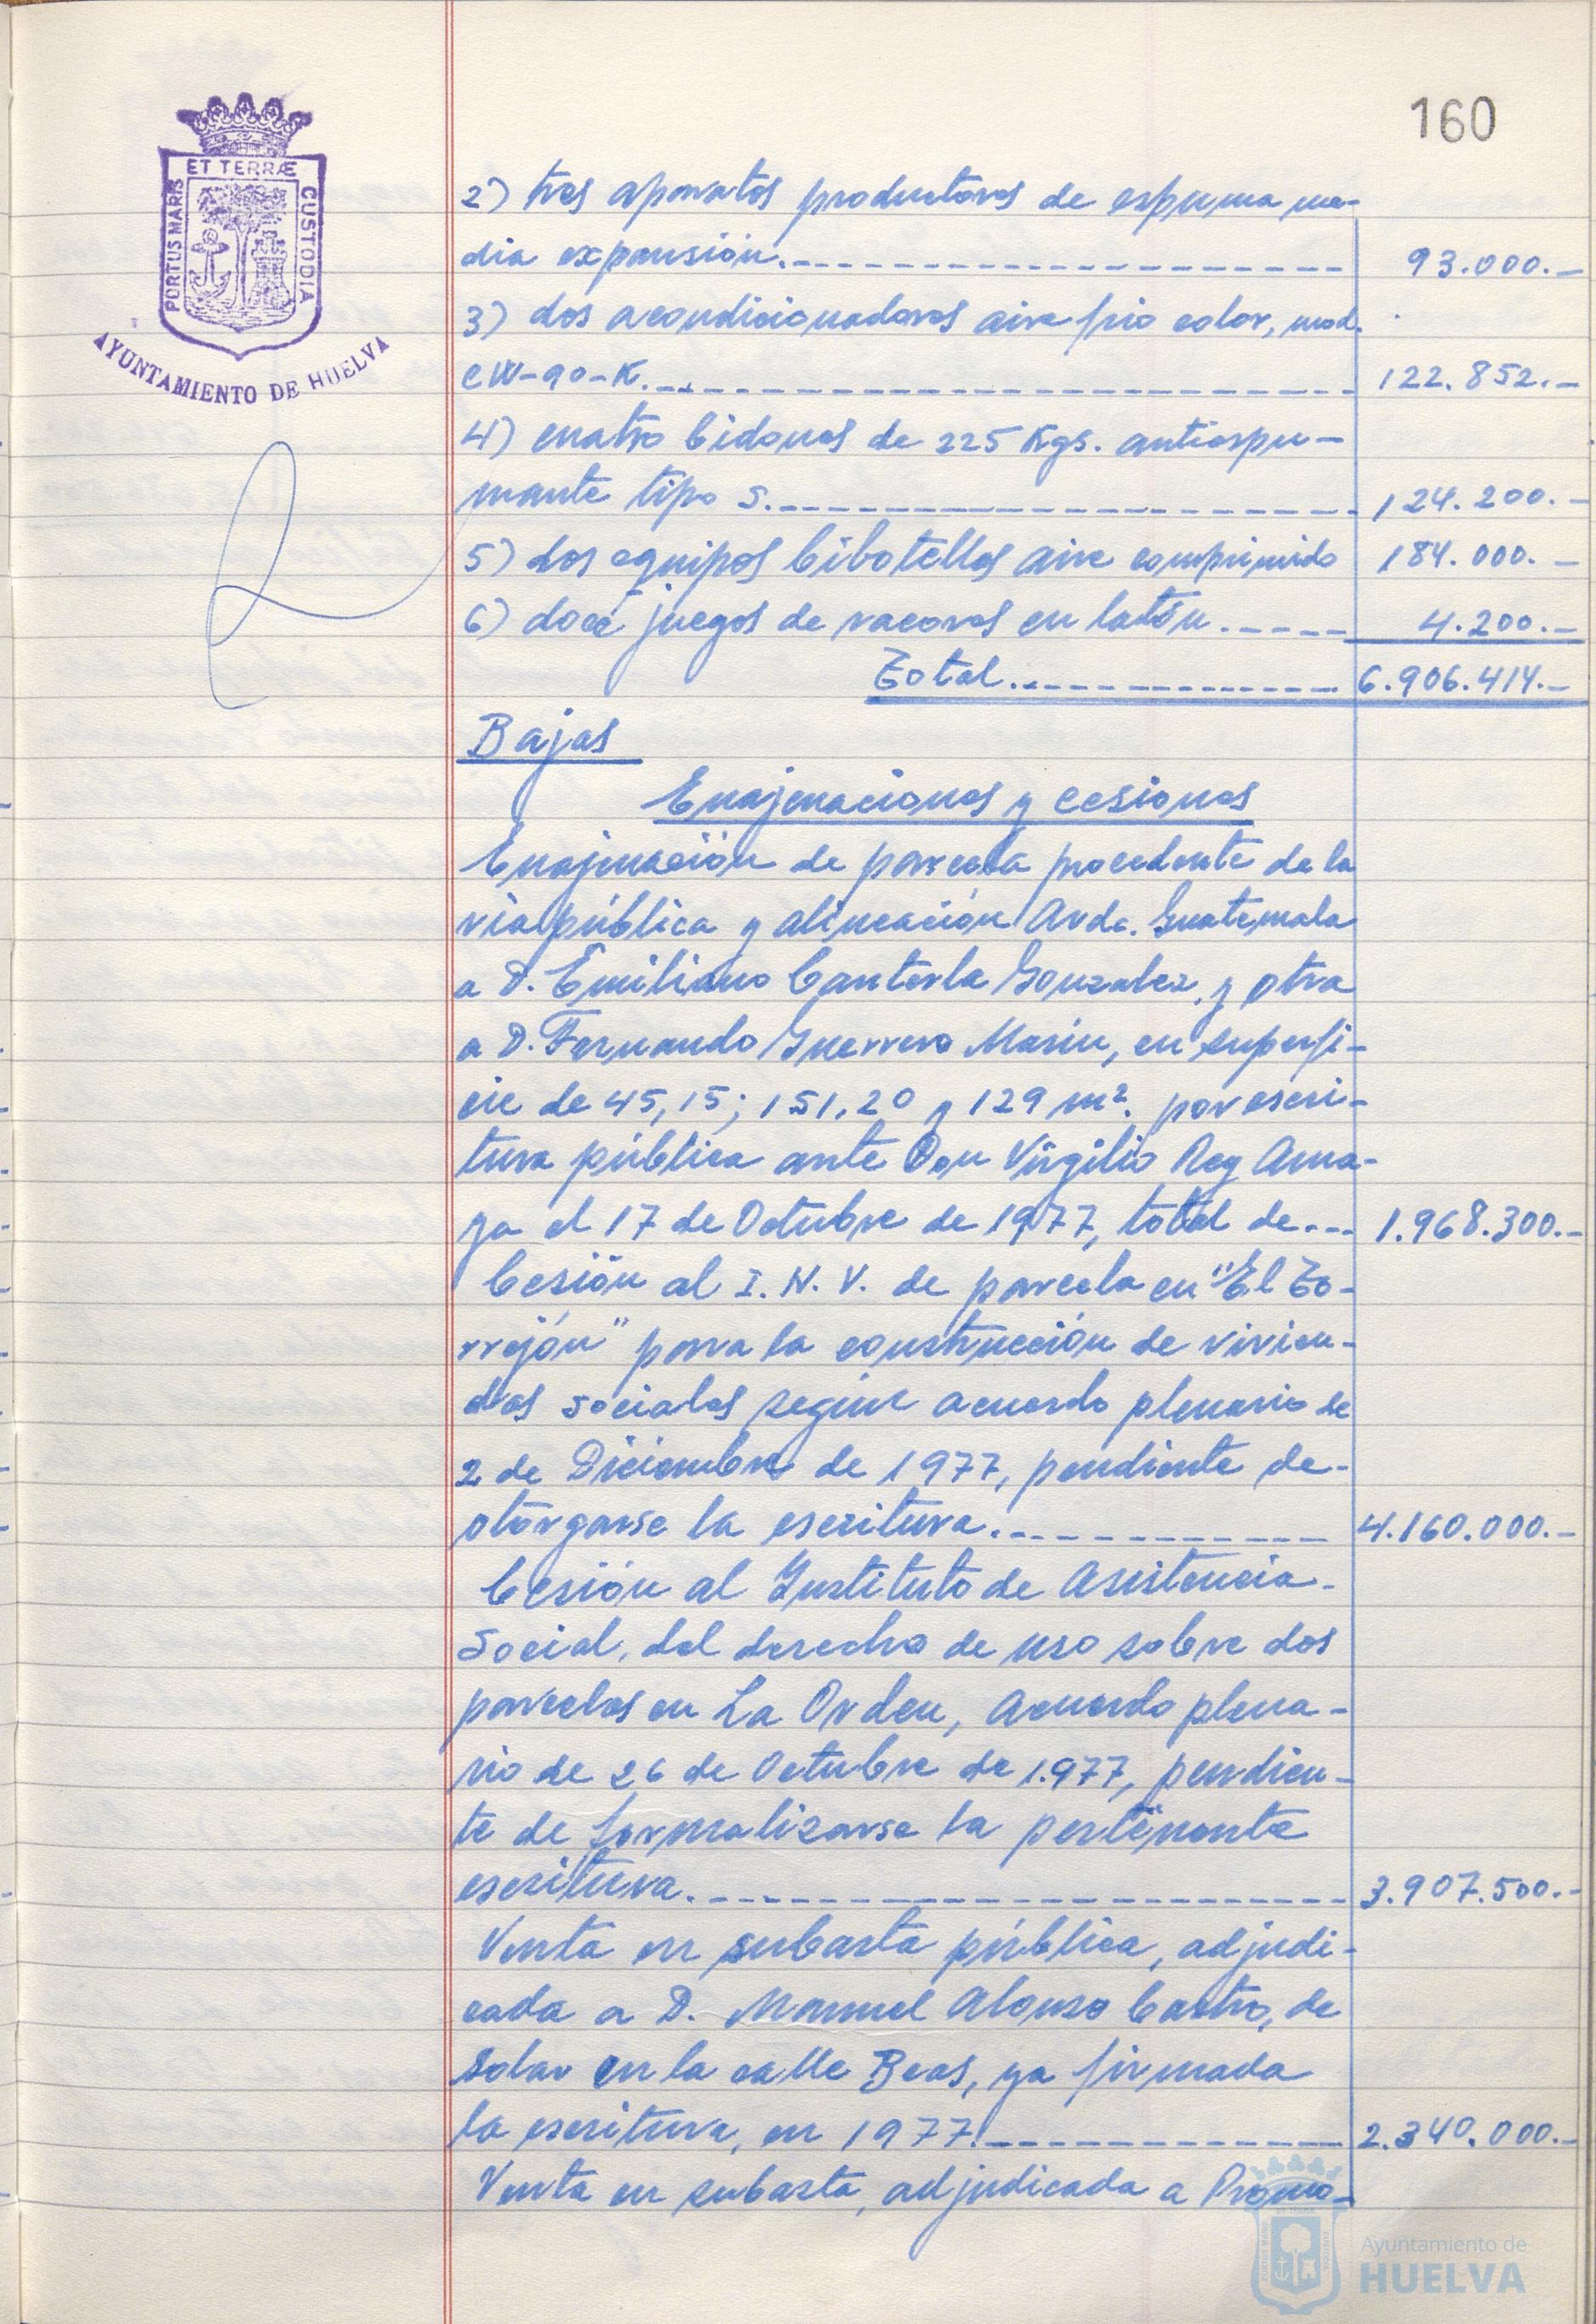 160
ET TERRÆ
PORTUS MARIS
CUSTODIA
AYUNTAMIENTO DE HUELVA
2) tres aparatos productores de espuma me-
dia expansión. 93.000.-
3) dos acondicionadores aire frio calor, mod.
CW-90-K. 122.852.-
4) cuatro bidones de 225 Kgs. antiespu-
mante tipo S. 124.200.-
5) dos equipos bibotellas aire comprimido 184.000.-
6) doce juegos de racores en latón. 4.200.-
Total. 6.906.414.-
Bajas
Enajenaciones y cesiones
Enajenación de parcela procedente de la
via pública y alineación Avda. Guatemala
a D. Emiliano Canterla Gonzalez y otra
a D. Fernando Guerrero Marin, en superfi-
cie de 45,15; 151,20 y 129 m². por escri-
tura pública ante Don Virgilio Rey Ama-
ya el 17 de Octubre de 1977, total de 1.968.300.-
Cesión al I.N.V. de parcela en "El To-
rrejón" para la construcción de vivien-
das sociales según acuerdo plenario de
2 de Diciembre de 1977, pendiente de-
otorgarse la escritura. 4.160.000.-
Cesión al Instituto de Asistencia-
Social, del derecho de uso sobre dos
parcelas en La Orden, acuerdo plena-
rio de 26 de Octubre de 1.977, pendien-
te de formalizarse la pertinente
escritura. 3.907.500.-
Venta en subasta pública, adjudi-
cada a D. Manuel Alonso Castro, de
solar en la calle Beas, ya firmada
la escritura, en 1977. 2.340.000.-
Venta en subasta, adjudicada a Promo-
Ayuntamiento de
HUELVA